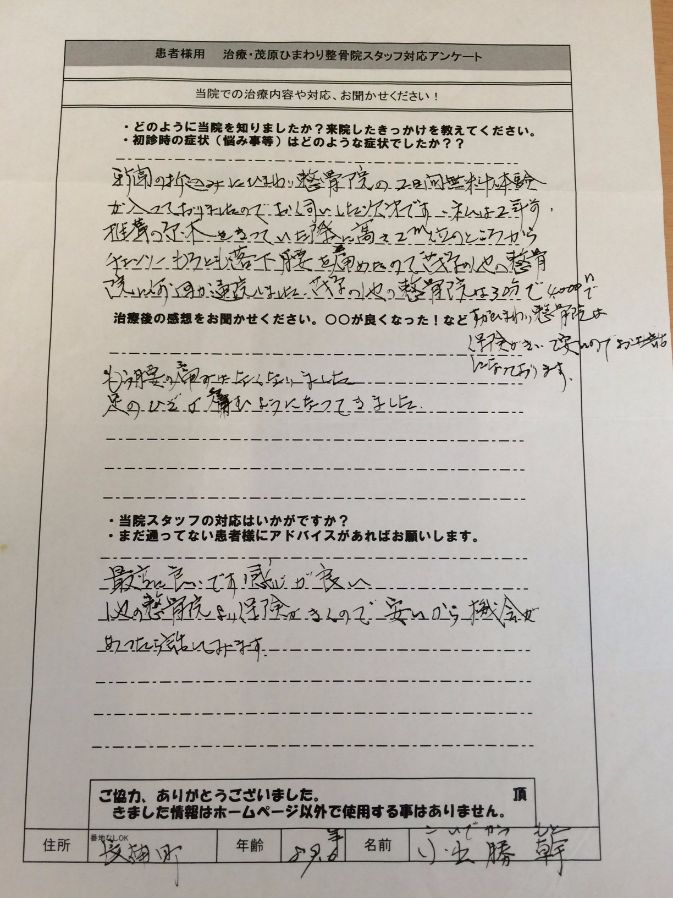 患者様用 治療・茂原ひまわり整骨院スタッフ対応アンケート
当院での治療内容や対応、お聞かせください!
・どのように当院を知りましたか?来院したきっかけを教えてください。
・初診時の症状(悩み事等)はどのような症状でしたか??
新聞の折込みにひまわり整骨院の2日間無料体験
が入っておりましたのでお伺いした次第です、私は2年前、
をきっていた際に高さ2m位のところから
チェンソーもろとも落下腰を痛めたので茂原の他の整骨
院に通院しました、茂原の他の整骨院は30分で4,000円で
すがひまわり整骨院は
保険がきいて安いのでお世話
になっております。
治療後の感想をお聞かせください。〇〇が良くなった!など
もう腰の痛みはなくなりました
足のひざが痛むようになってきました
・当院スタッフの対応はいかがですか?
・まだ通ってない患者様にアドバイスがあればお願いします。
最高に良いです感じが良い
他の整骨院より保険がきくので安いから機会が
あったら話してみます。
ご協力、ありがとうございました。 頂
きました情報はホームページ以外で使用する事はありません。
住所 番地なしOK 長柄町 年齢 名前 小出勝幹 こいでかつもと